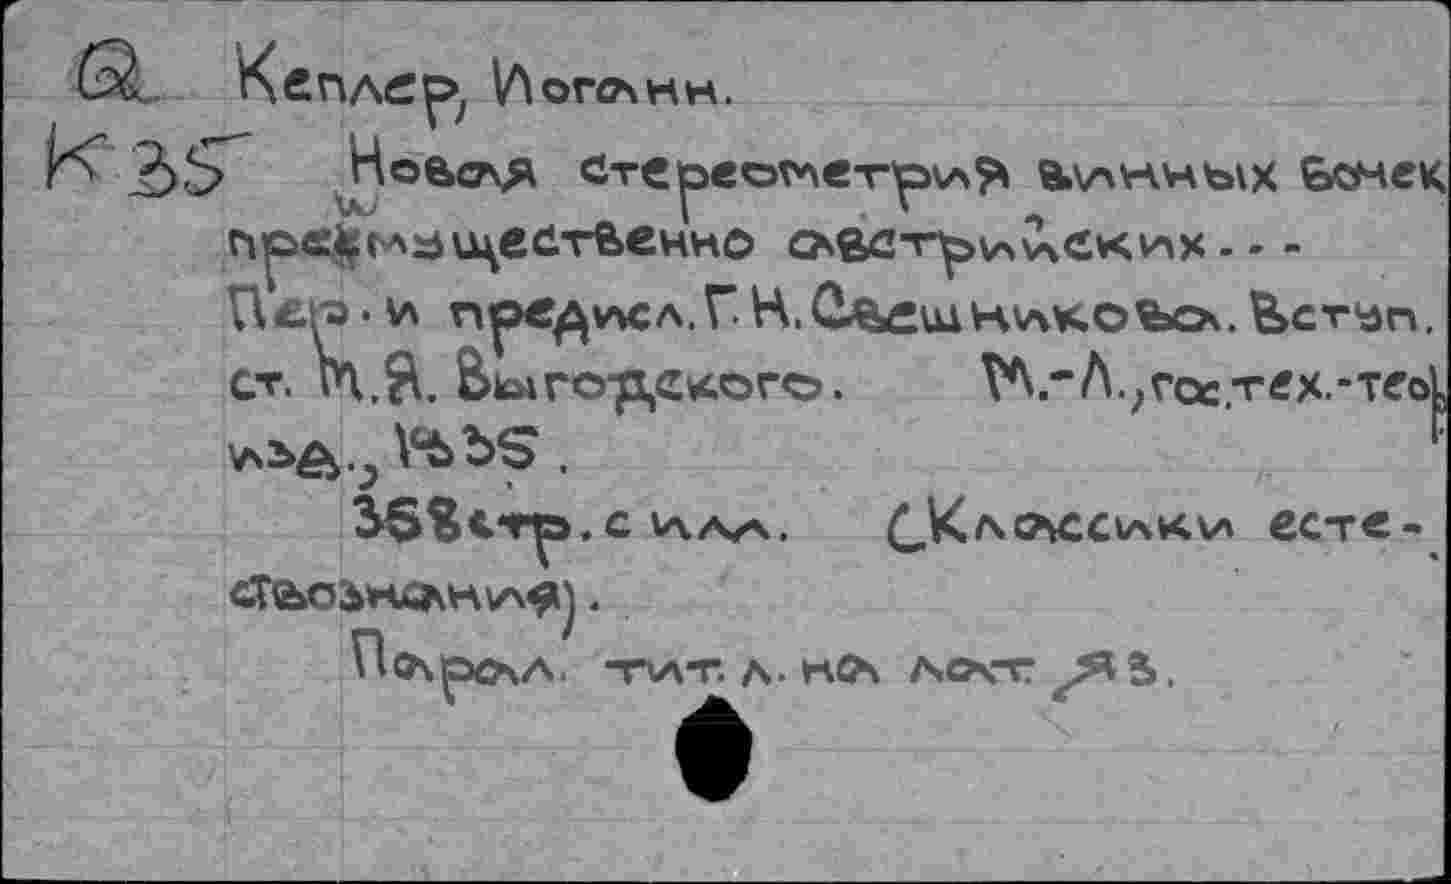 Q Кеплер, Иоганн.
К35 Новая стереометрия винных бочек
преимущественно австрийских...
Пер. и предисл. Г.Н. Свешникова. Вступ.
ст. М.Я. Выгодского. М.-Л., гос. тех.-теор.
изд., 1935.
368 стр. с илл. (Классики есте-
ствознания).
Парал. тит. л. на лат. яз.